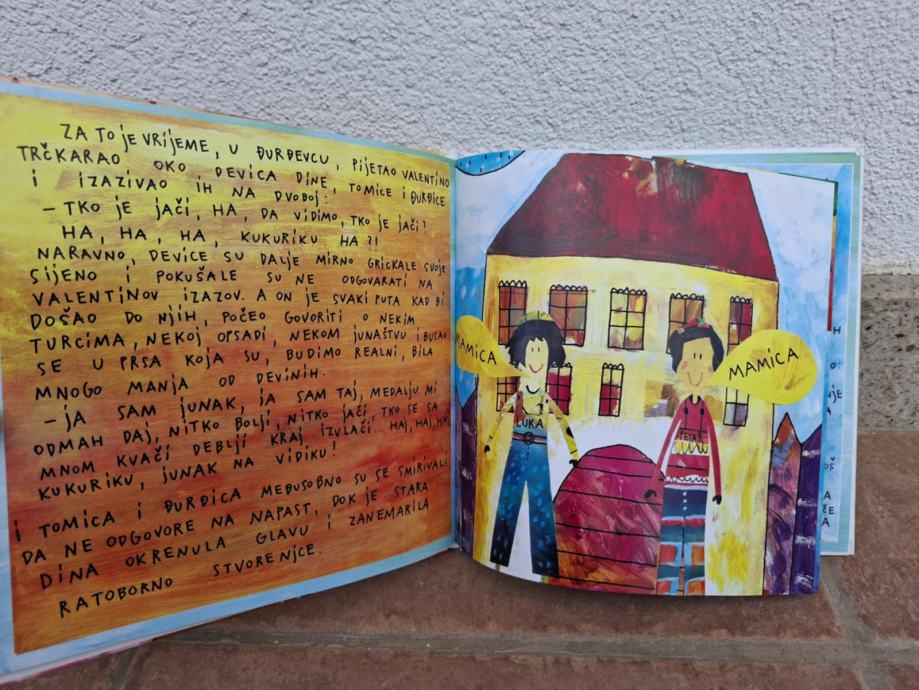 ZA TO JE VRIJEME, U ĐURĐEVCU, PIJETAO VALENTINO
TRČKARAO OKO DEVICA DINE, TOMICE I ĐURĐICE
I IZAZIVAO IH NA DVOBOJ:
- TKO JE JAČI, HA, DA VIDIMO, TKO JE JAČI?
HA, HA, HA, KUKURIKU, HA?!
NARAVNO, DEVICE SU DALJE MIRNO GRICKALE SVOJE
SIJENO I POKUŠALE SU NE ODGOVARATI NA
VALENTINOV IZAZOV. A ON JE SVAKI PUTA KAD BI
DOŠAO DO NJIH, POČEO GOVORITI O NEKIM
TURCIMA, NEKOJ OPSADI, NEKOM JUNAŠTVU I BUSAO
SE U PRSA KOJA SU, BUDIMO REALNI, BILA
MNOGO MANJA OD DEVINIH.
- JA SAM JUNAK, JA SAM TAJ, MEDALJU MI
ODMAH DAJ, NITKO BOLJI, NITKO JAČI, TKO SE SA
MNOM KVAČI DEBLJI KRAJ IZVLAČI... HAJ, HAJ, HAJ
KUKURIKU, JUNAK NA VIDIKU!
I TOMICA I ĐURĐICA MEĐUSOBNO SU SE SMIRIVALI
DA NE ODGOVORE NA NAPAST, DOK JE STARA
DINA OKRENULA GLAVU I ZANEMARILA
RATOBORNO STVORENJCE.
MAMICA
MAMICA
LUKA